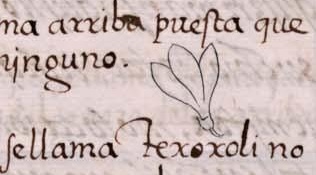 ma arriba puesta que
ynguno.
sellama texoxoli no